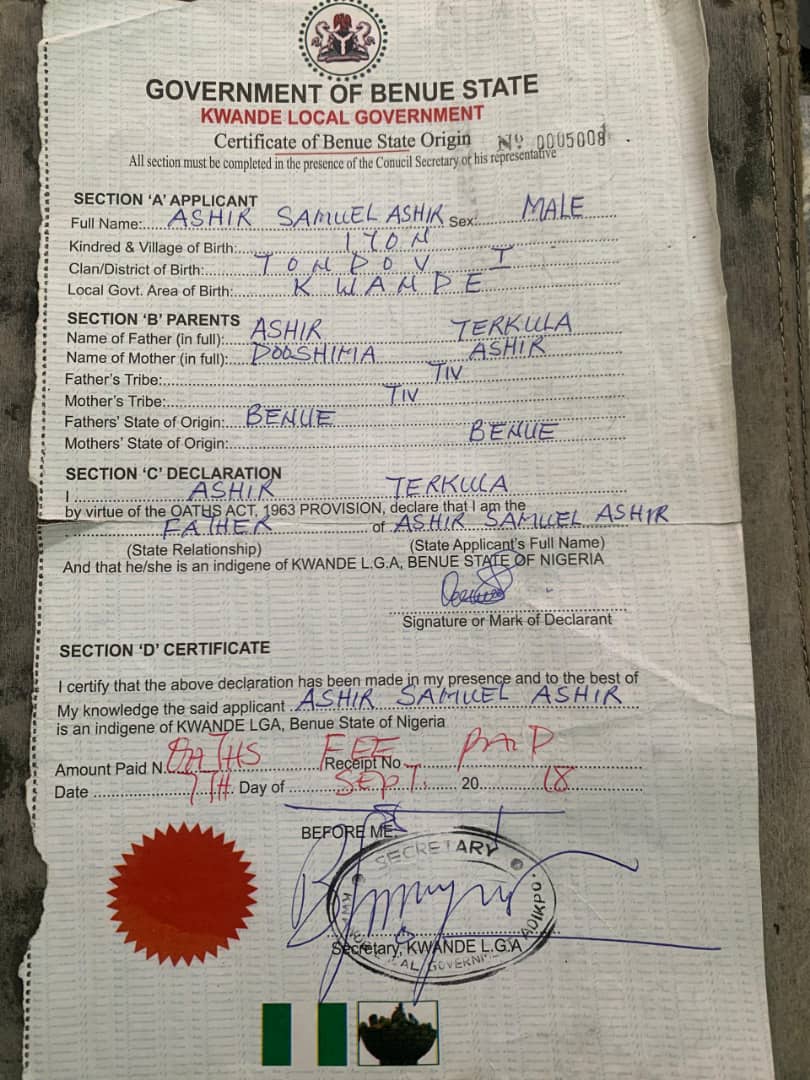 GOVERNMENT OF BENUE STATE
KWANDE LOCAL GOVERNMENT
Certificate of Benue State Origin Nº 0005008
All section must be completed in the presence of the Conucil Secretary or his representative
SECTION 'A' APPLICANT
Full Name: ASHIR SAMUEL ASHIR Sex: MALE
Kindred & Village of Birth: IYON
Clan/District of Birth: TONDOV I
Local Govt. Area of Birth: KWANDE
SECTION 'B' PARENTS
Name of Father (in full): ASHIR TERKULA
Name of Mother (in full): DOOSHIMA ASHIR
Father's Tribe: TIV
Mother's Tribe: TIV
Fathers' State of Origin: BENUE
Mothers' State of Origin: BENUE
SECTION 'C' DECLARATION
I ASHIR TERKULA
by virtue of the OATHS ACT, 1963 PROVISION, declare that I am the
FATHER of ASHIR SAMUEL ASHIR
(State Relationship) (State Applicant's Full Name)
And that he/she is an indigene of KWANDE L.G.A, BENUE STATE OF NIGERIA
Signature or Mark of Declarant
SECTION 'D' CERTIFICATE
I certify that the above declaration has been made in my presence and to the best of
My knowledge the said applicant ASHIR SAMUEL ASHIR
is an indigene of KWANDE LGA, Benue State of Nigeria
Amount Paid N. OATHS FEE Receipt No PAID
Date 7TH. Day of SEPT. 20 18
BEFORE ME:
SECRETARY
Secretary, KWANDE L.G.A
ADIKPO.